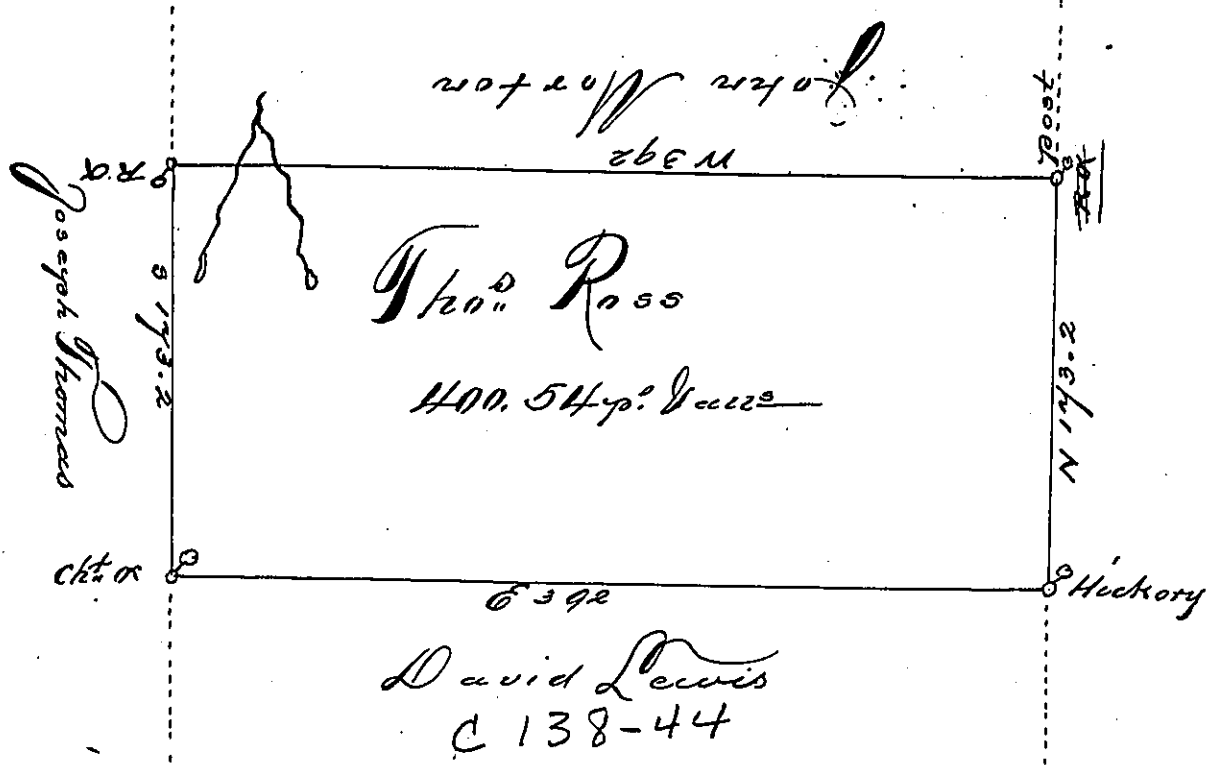 John Morton
W 392
Post
R.O.
Joseph Thomas
S 173.2
Tho.s Ross
400. 54 p.s
N 173.2
Cht. O
E 392
Hickory
David Lewis
C 138-44